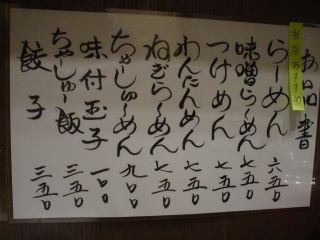 お品書
当店おすすめ
らーめん 六五〇
味噌らーめん 七五〇
つけめん 七五〇
わんたんめん 七五〇
ねぎらーめん 七五〇
ちゃーしゅーめん 九〇〇
味付玉子 一〇〇
ちゃーしゅー飯 三五〇
餃子 三五〇